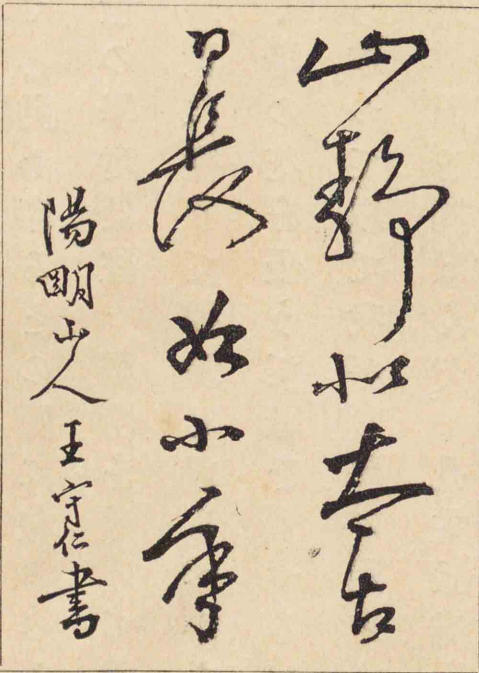 山靜似太古
日長如小年
陽明山人王守仁書